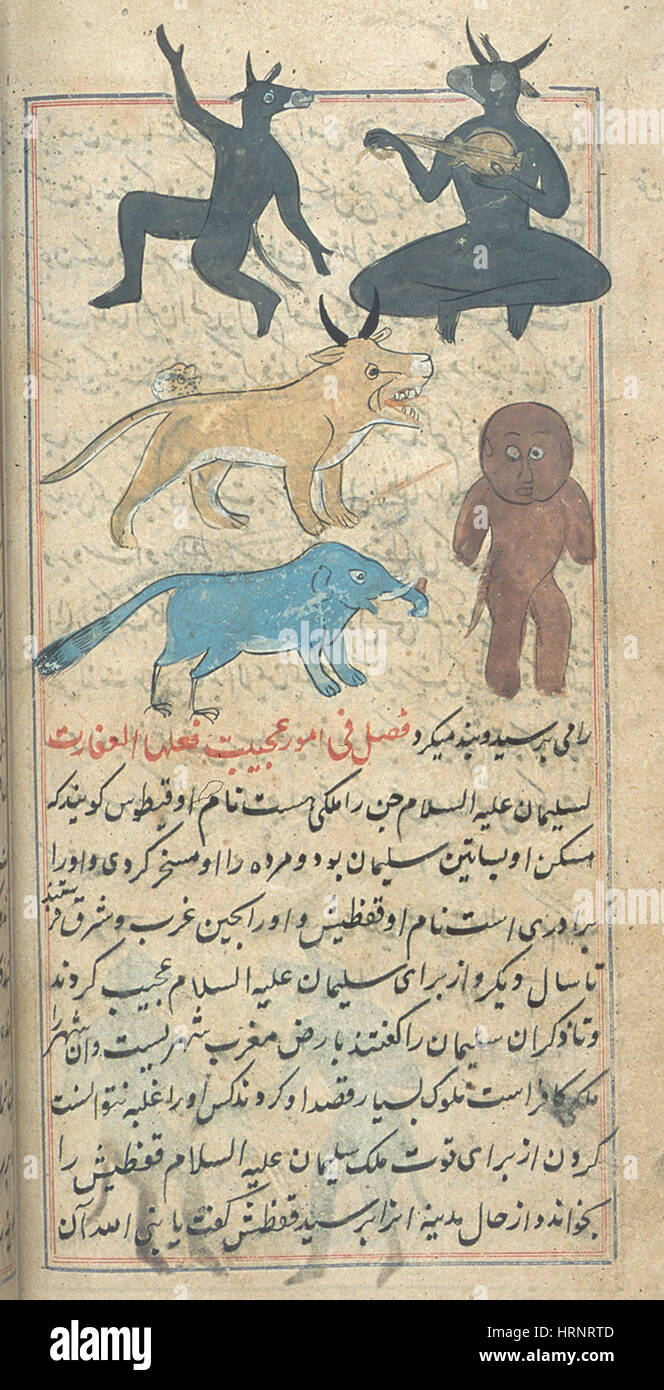 را می پرسید و بند میکرد فصل فی امور عجیبت فعلها العفارت
لسلیمان علیه السلام جن را ملکی هست نام او قیطوس کویند که
مسکن او بساتین سلیمان بود و مرده را او مسخر کردی و اورا
برادری است نام او قفظیش و اورا بجین غرب و شرق فر
ستند
تا سال دیکر و از برای سلیمان علیه السلام عجیب کردند
و تذکران سلیمان را کفتند بارض مغرب شهریست و آن شهر را
ملک کافر است ملوک بسیار قصد او کردند کس او را غلبه نتوانست
کردن از برای قوت ملک سلیمان علیه السلام قفظیش را
بخواند و از حال مدینة از او پرسید قفظش کفت یا نبی الله آن
alamy
Image ID: HRNRTD
www.alamy.com